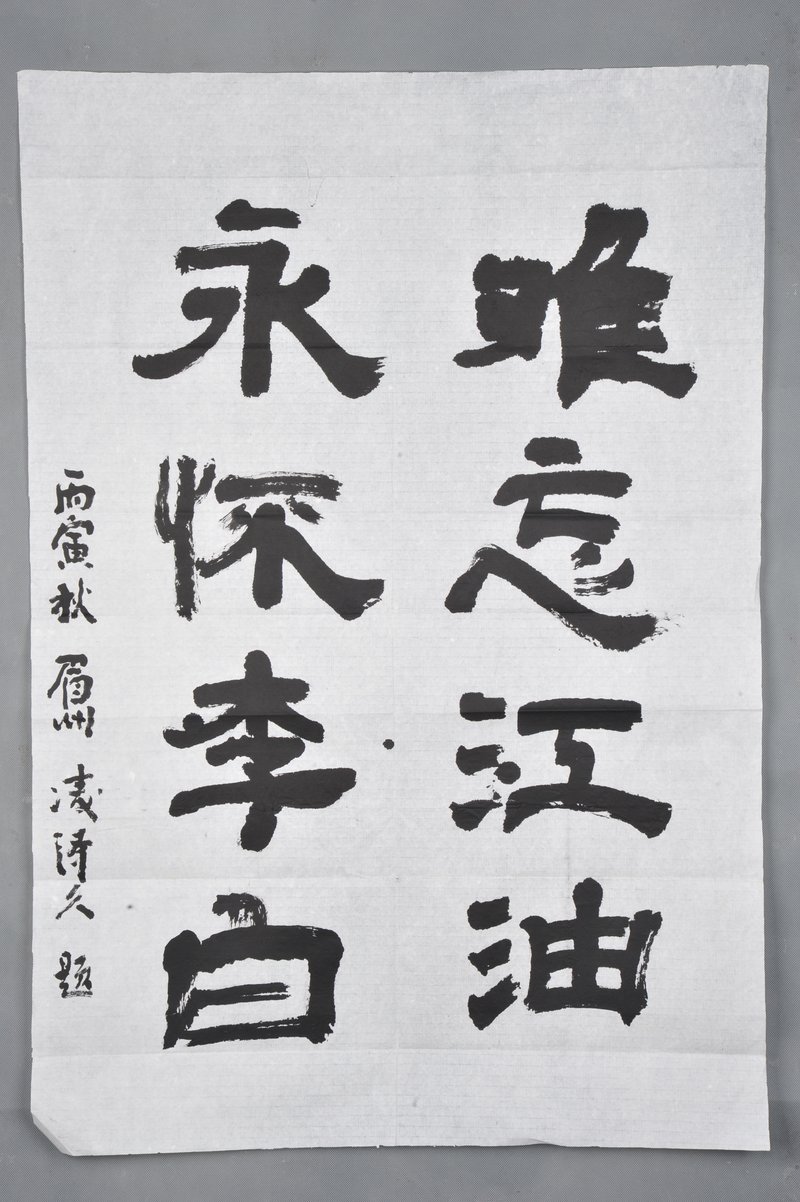 难忘江油
永怀李白
丙寅秋 眉州 凌诗久 题